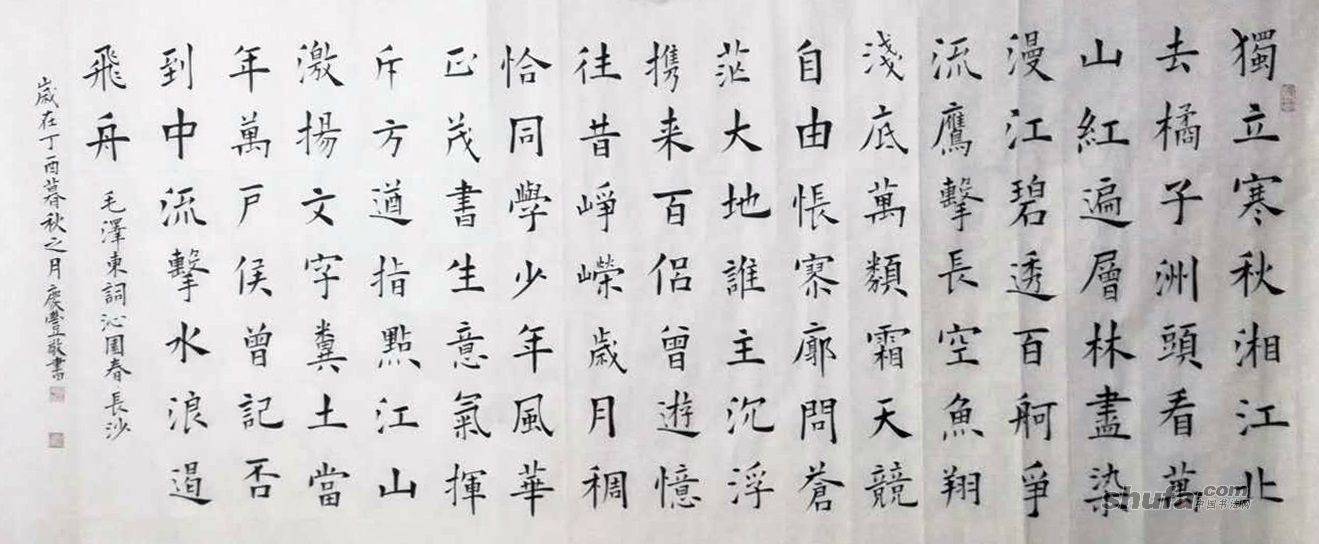 獨立寒秋湘江北
去橘子洲頭看萬
山紅遍層林盡染
漫江碧透百舸爭
流鷹擊長空魚翔
淺底萬類霜天競
自由悵寥廓問蒼
茫大地誰主沉浮
携来百侣曾遊憶
往昔崢嶸歲月稠
恰同學少年風華
正茂書生意氣揮
斥方遒指點江山
激揚文字糞土當
年萬戶侯曾記否
到中流擊水浪遏
飛舟
毛澤東詞沁園春長沙
歲在丁酉暮秋之月慶豐敬書
shufa.com
中国书法网